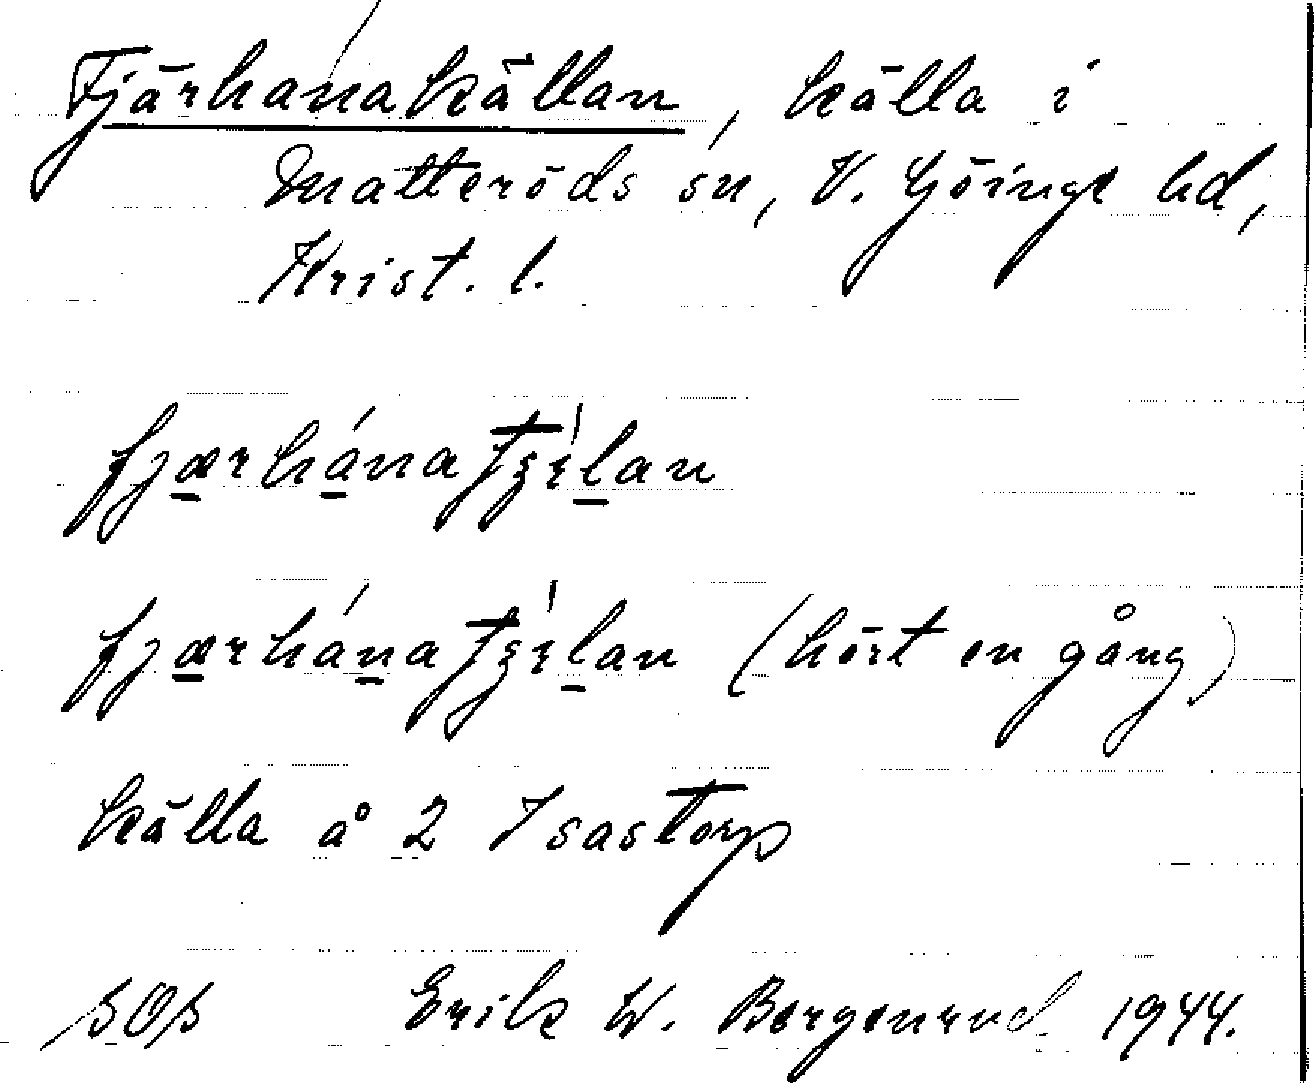 Fjärhanakällan, källa i
Matteröds sn, V. Göinge hd,
Krist. l.
fjærhána
fjærhána (hört en gång)
källa å 2 Isastorp
SOS Erik W. Bergenrud 1944.